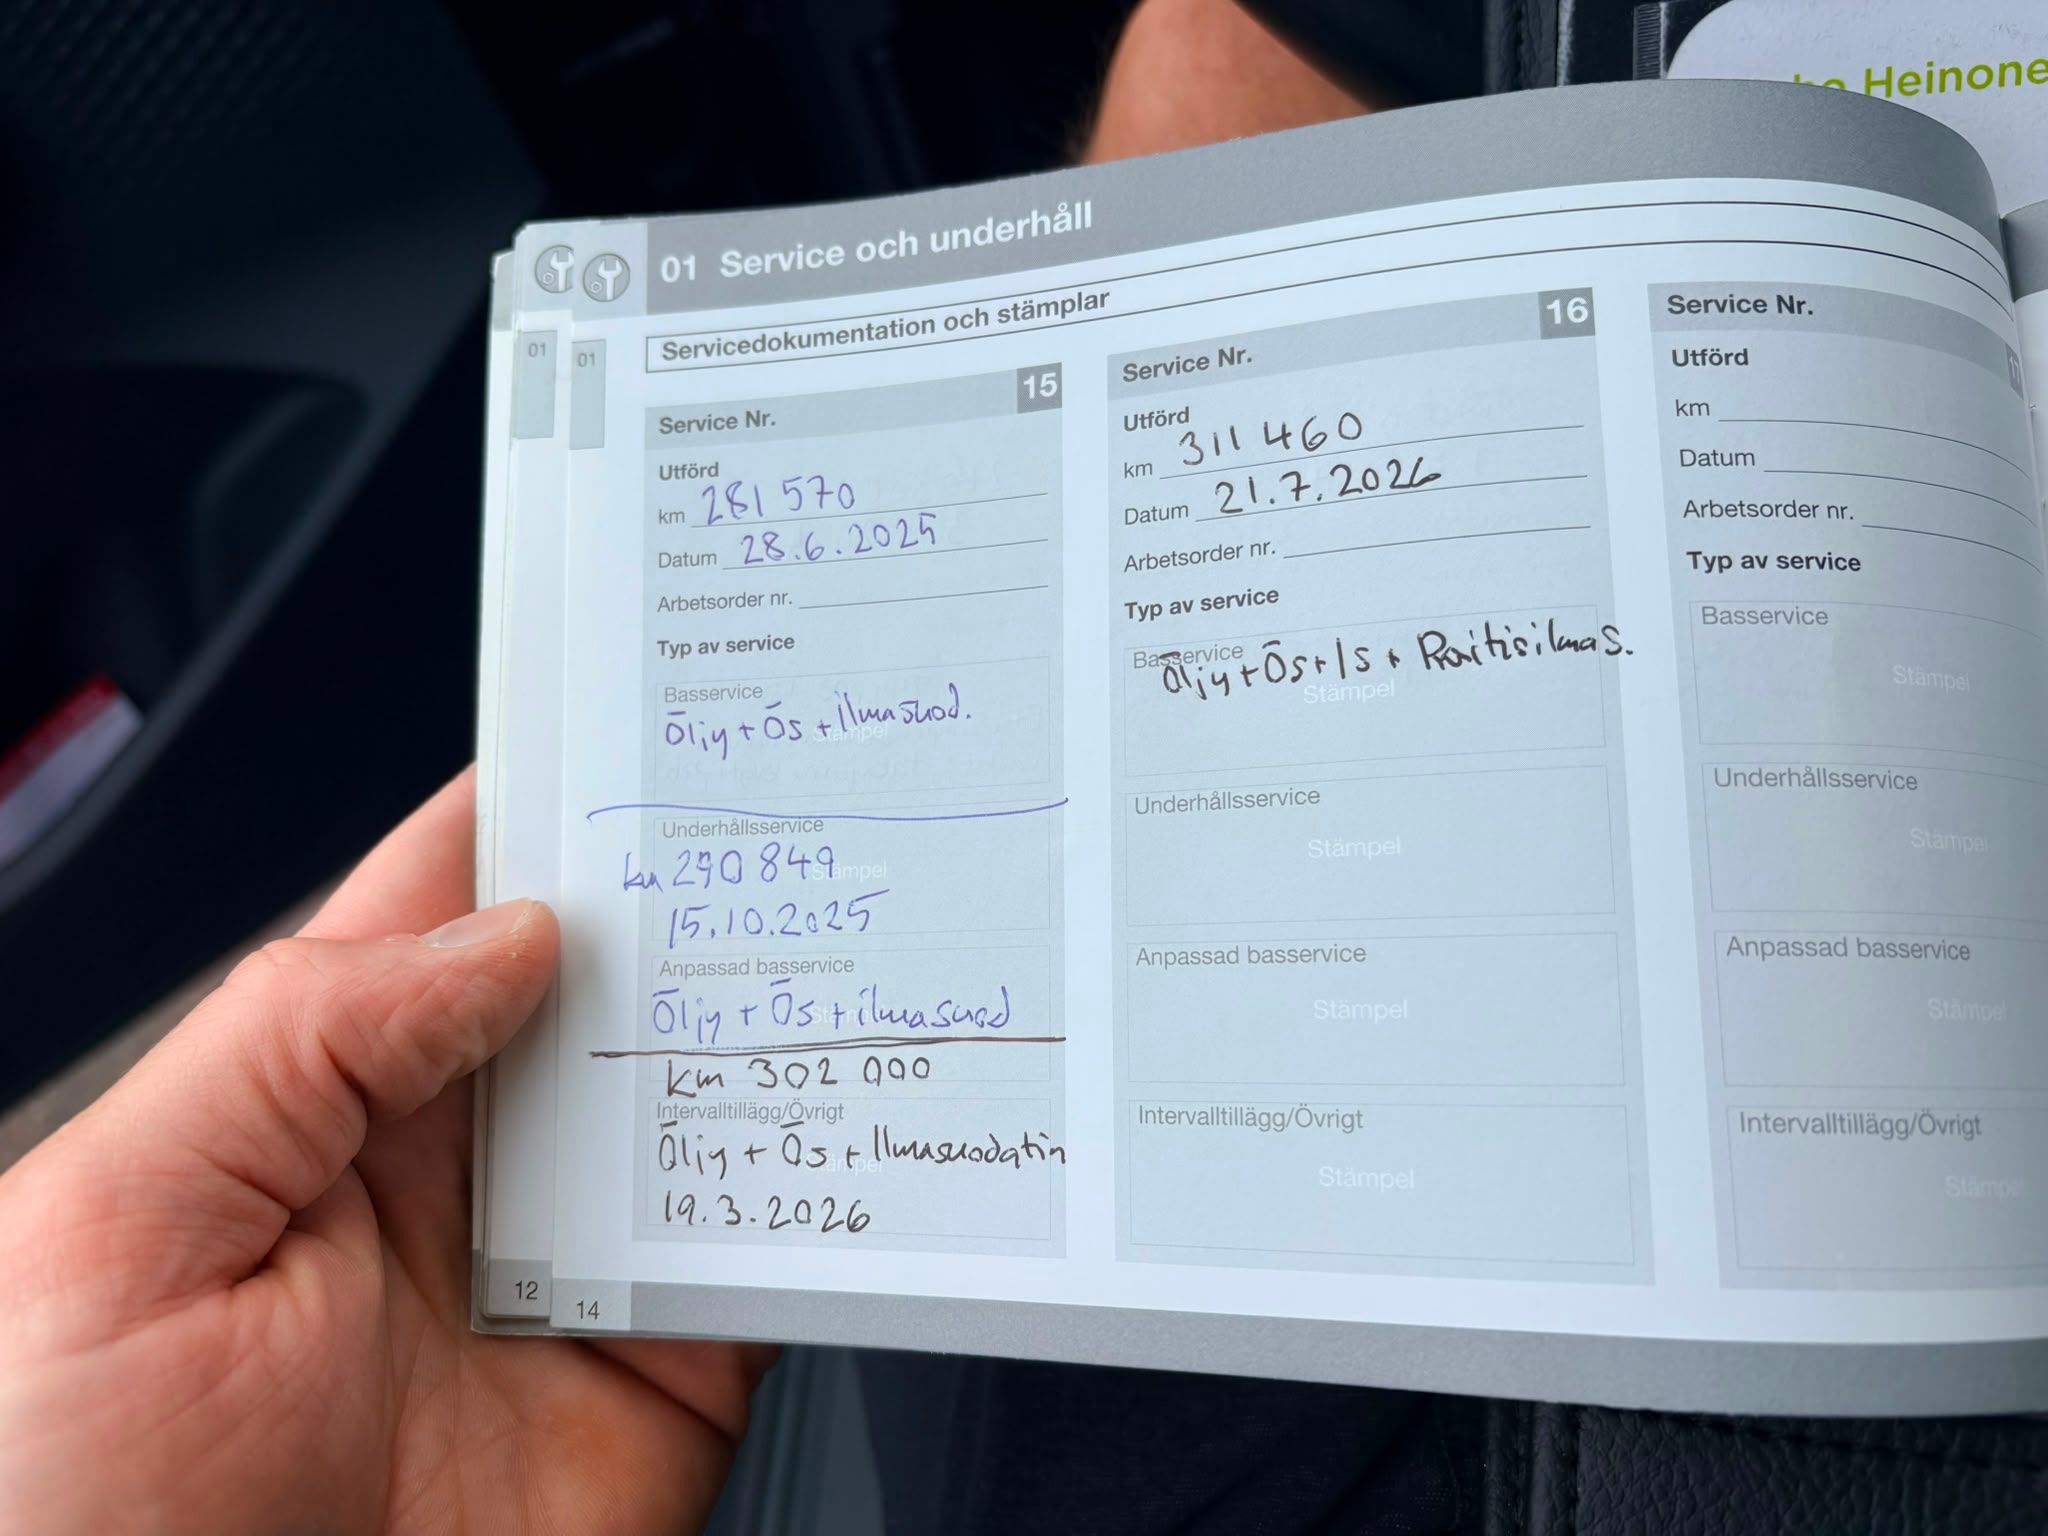 Heinone
01 Service och underhåll
Servicedokumentation och stämplar
01
01
15
Service Nr.
Utförd
km 281 570
Datum 28.6.2025
Arbetsorder nr.
Typ av service
Basservice
Stämpel
Öljy + Ös + ilmasuod.
Underhållsservice
Stämpel
km 290 849
15.10.2025
Anpassad basservice
Öljy + Ös + ilmasuod
km 302 000
Intervalltillägg/Övrigt
Stämpel
Öljy + Ös + Ilmasuodatin
19.3.2026
16
Service Nr.
Utförd
km 311 460
Datum 21.7.2026
Arbetsorder nr.
Typ av service
Basservice
Stämpel
Öljy + Ös + Is + Raitisilmas.
Underhållsservice
Stämpel
Anpassad basservice
Stämpel
Intervalltillägg/Övrigt
Stämpel
17
Service Nr.
Utförd
km
Datum
Arbetsorder nr.
Typ av service
Basservice
Stämpel
Underhållsservice
Stämpel
Anpassad basservice
Stämpel
Intervalltillägg/Övrigt
Stämpel
12
14